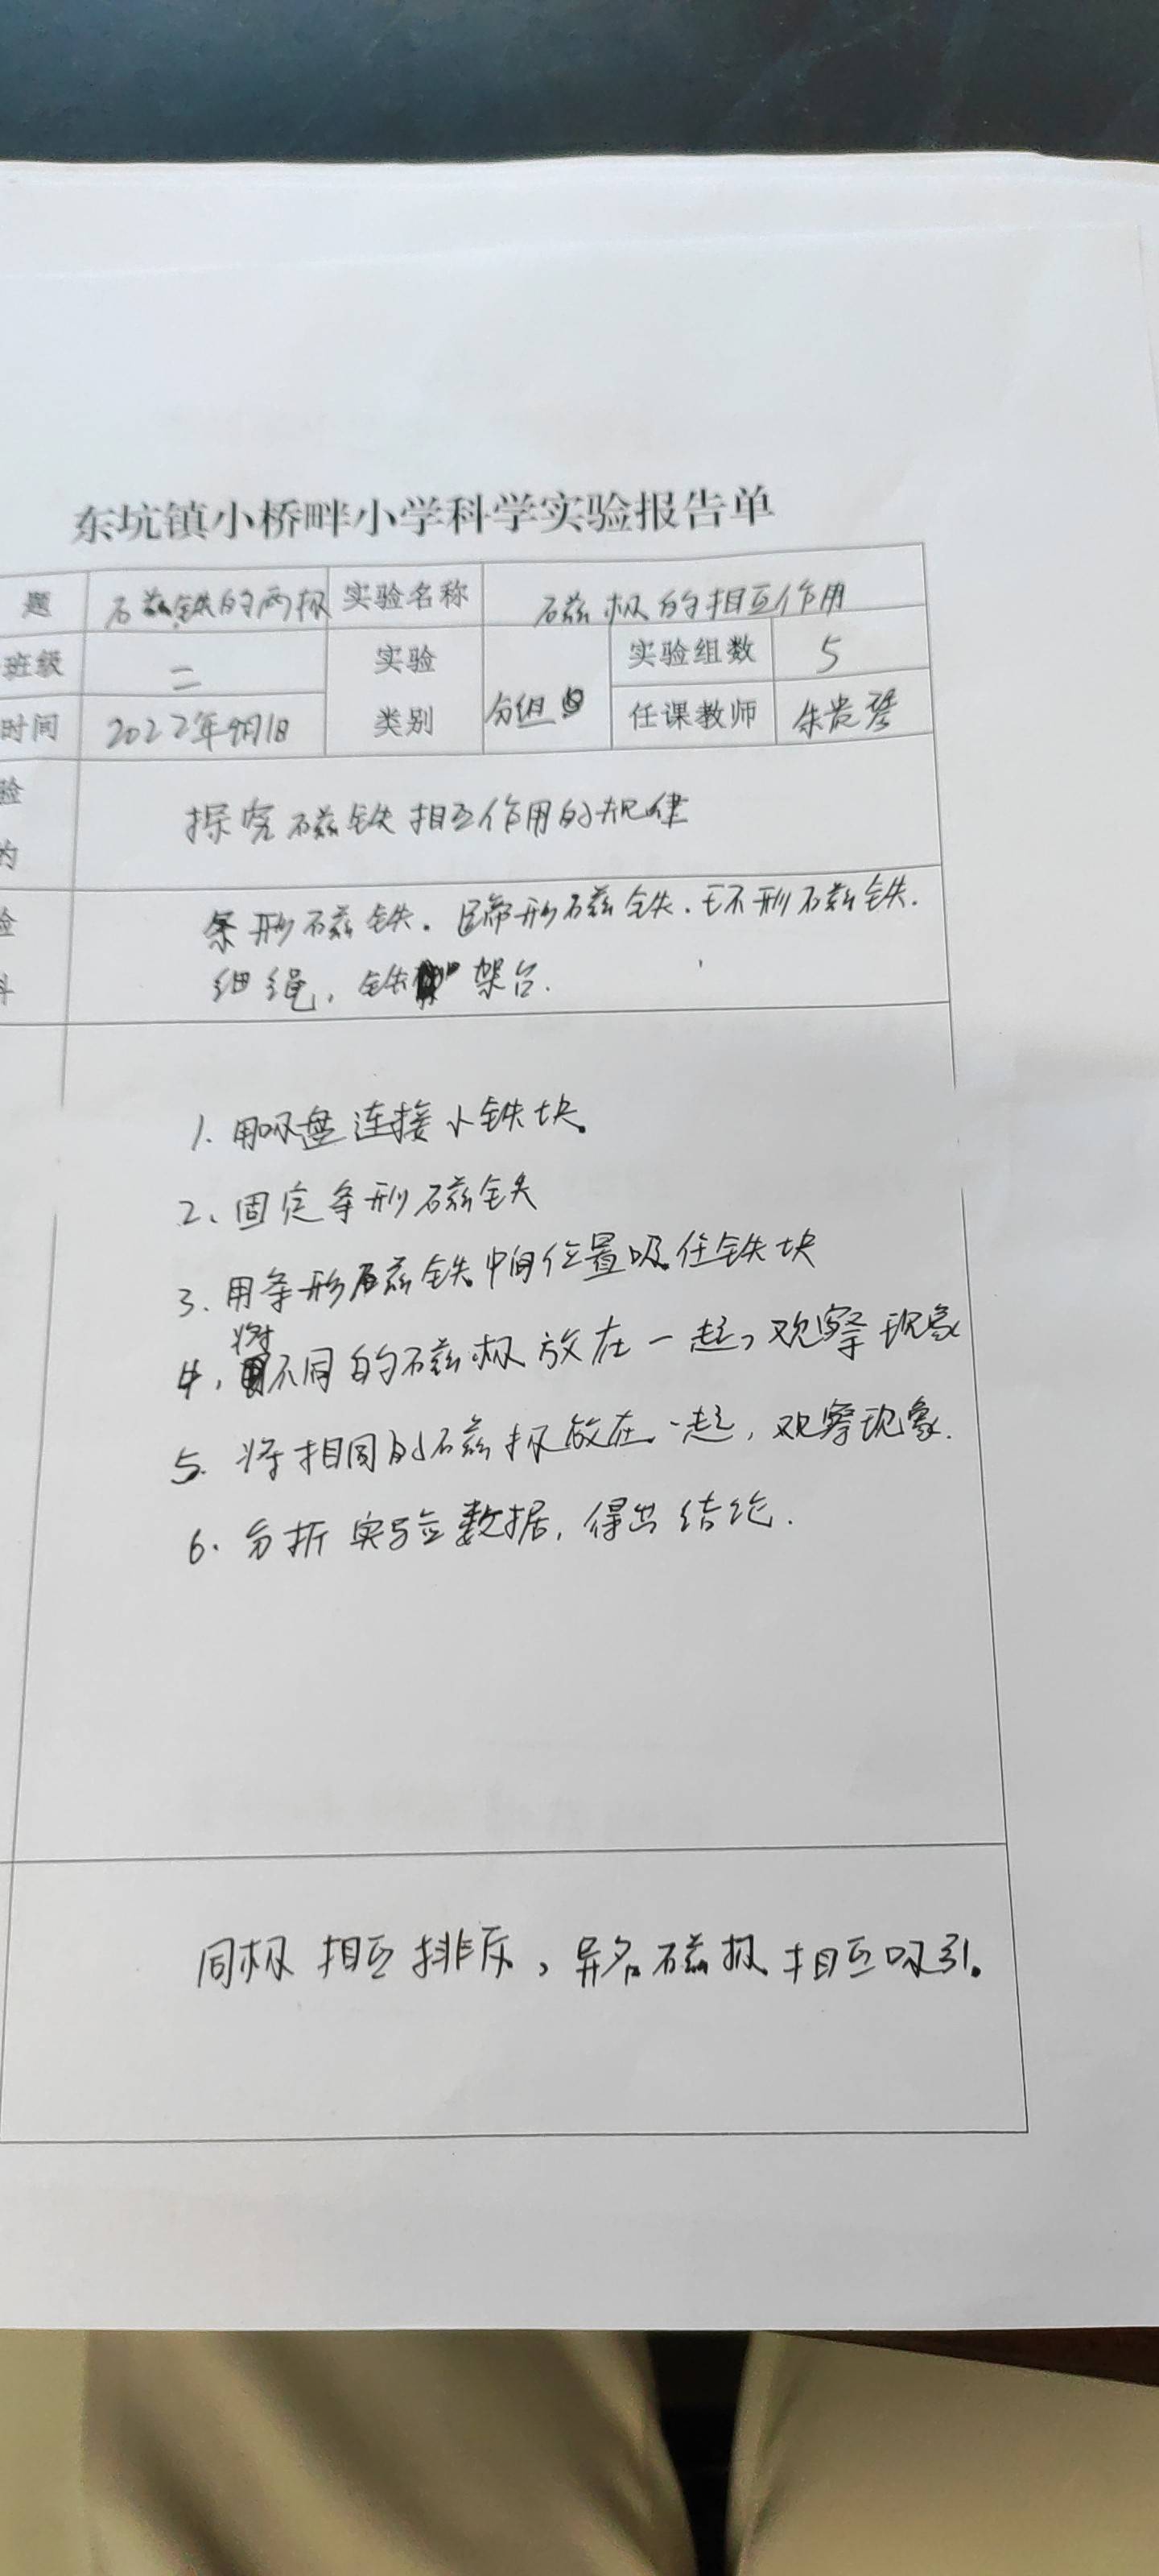 东坑镇小桥畔小学科学实验报告单
题 磁铁的两极 实验名称 磁极的相互作用
班级 二 实验 实验组数 5
时间 2022年9月1日 类别 分组 任课教师 朱贵琴
验 探究磁铁相互作用的规律
的
验 条形磁铁.蹄形磁铁.环形磁铁.
料 细绳,铁架台.
1.用吸盘连接小铁块。
2、固定条形磁铁
3.用条形磁铁中间位置吸住铁块
4,将不同的磁极放在一起,观察现象
5.将相同的磁极放在一起,观察现象.
6.分折实验数据,得出结论.
同极相互排斥,异名磁极相互吸引。